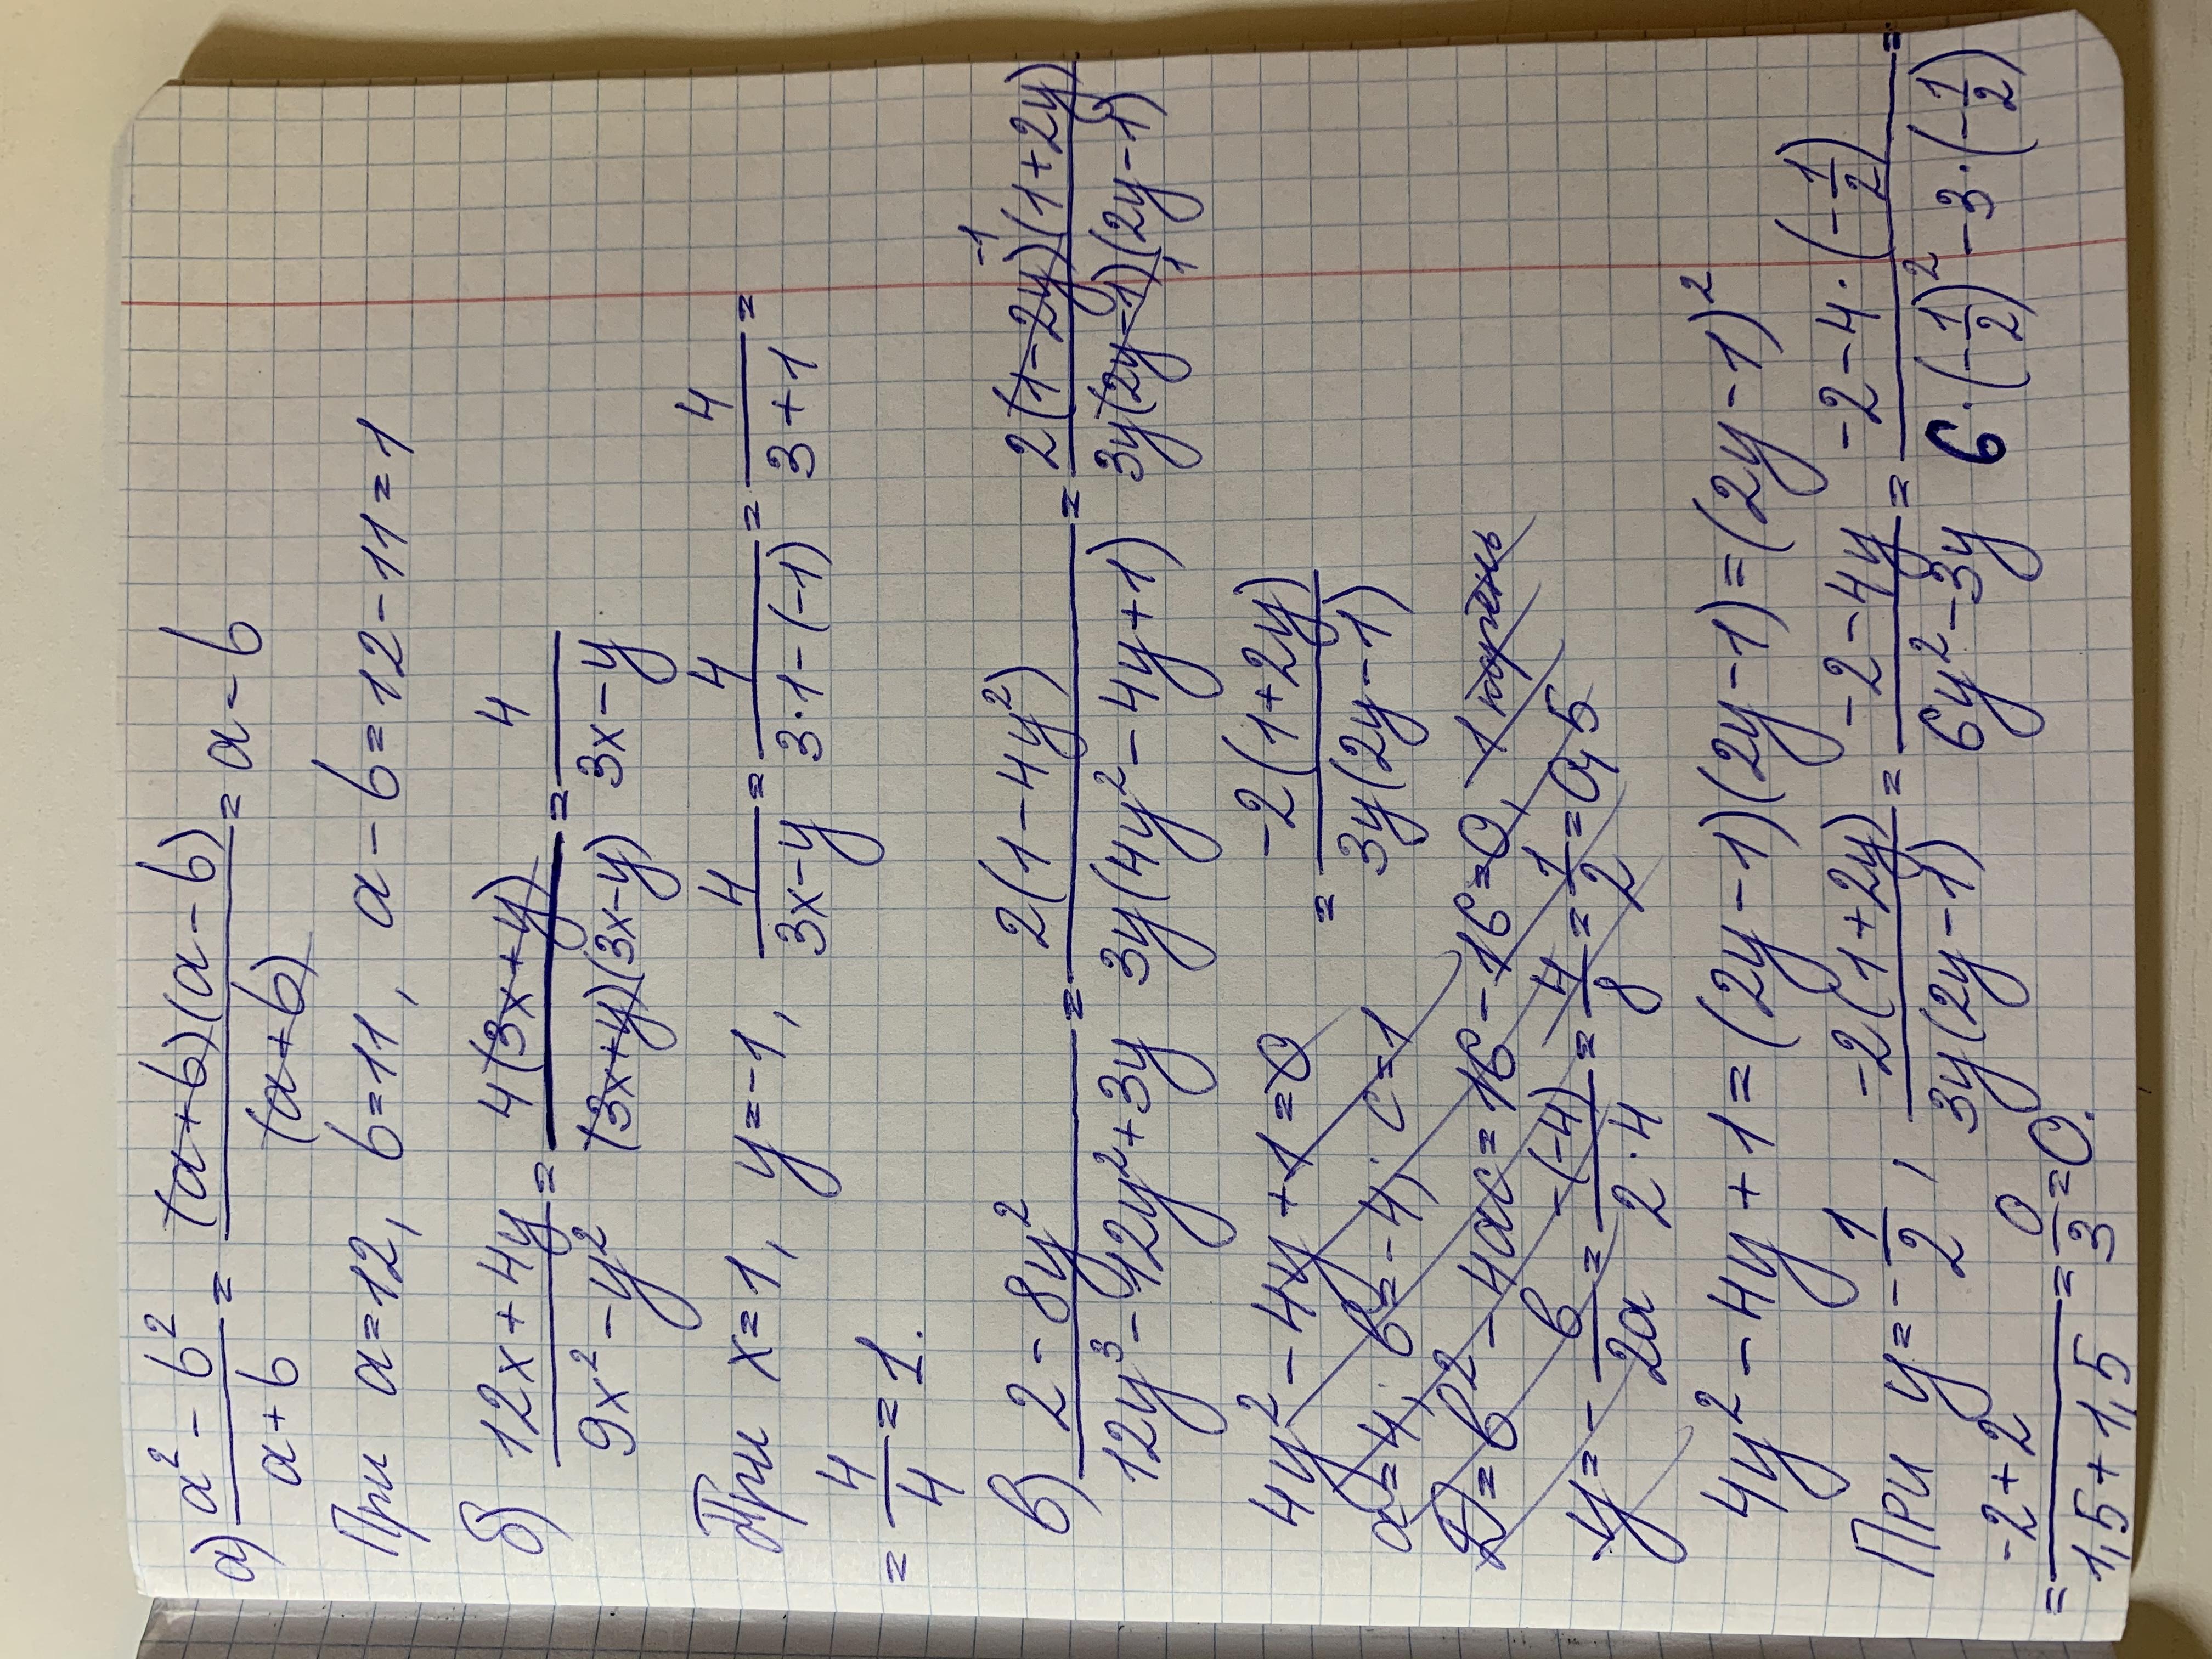 а) (a² - b²)/(a + b) = ((a+b)(a-b))/(a+b) = a - b
При a=12, b=11, a - b = 12 - 11 = 1
б) (12x + 4y)/(9x² - y²) = (4(3x+y))/((3x+y)(3x-y)) = 4/(3x-y)
При x=1, y=-1, 4/(3x-y) = 4/(3·1-(-1)) = 4/(3+1) =
= 4/4 = 1.
в) (2 - 8y²)/(12y³ - 12y² + 3y) = (2(1-4y²))/(3y(4y²-4y+1)) = (2(1-2y)⁻¹(1+2y))/(3y(2y-1)₁(2y-1)) =
= (-2(1+2y))/(3y(2y-1))
4y² - 4y + 1 = 0
a=4; b=-4; c=1
D = b² - 4ac = 16 - 16 = 0, 1 корень
y = - b/2a = -(-4)/(2·4) = 4/8 = 1/2 = 0,5
4y² - 4y + 1 = (2y-1)(2y-1) = (2y-1)²
При y = -1/2, (-2(1+2y))/(3y(2y-1)) = (-2-4y)/(6y²-3y) = (-2-4·(-1/2))/(6·(-1/2)²-3·(-1/2)) =
= (-2+2)/(1,5+1,5) = 0/3 = 0.